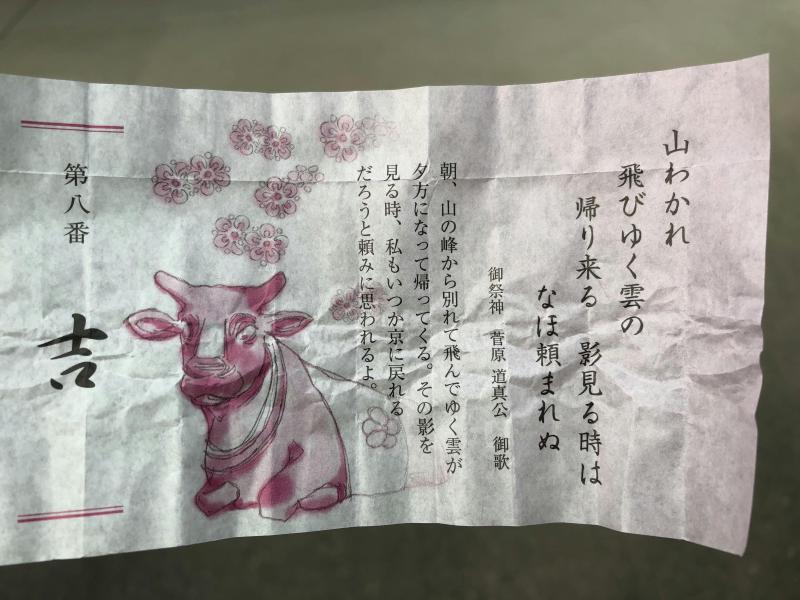 山わかれ
飛びゆく雲の
帰り来る 影見る時は
なほ頼まれぬ
御祭神 菅原 道真公 御歌
朝、山の峰から別れて飛んでゆく雲が
夕方になって帰ってくる。その影を
見る時、私もいつか京に戻れる
だろうと頼みに思われるよ。
第八番
吉